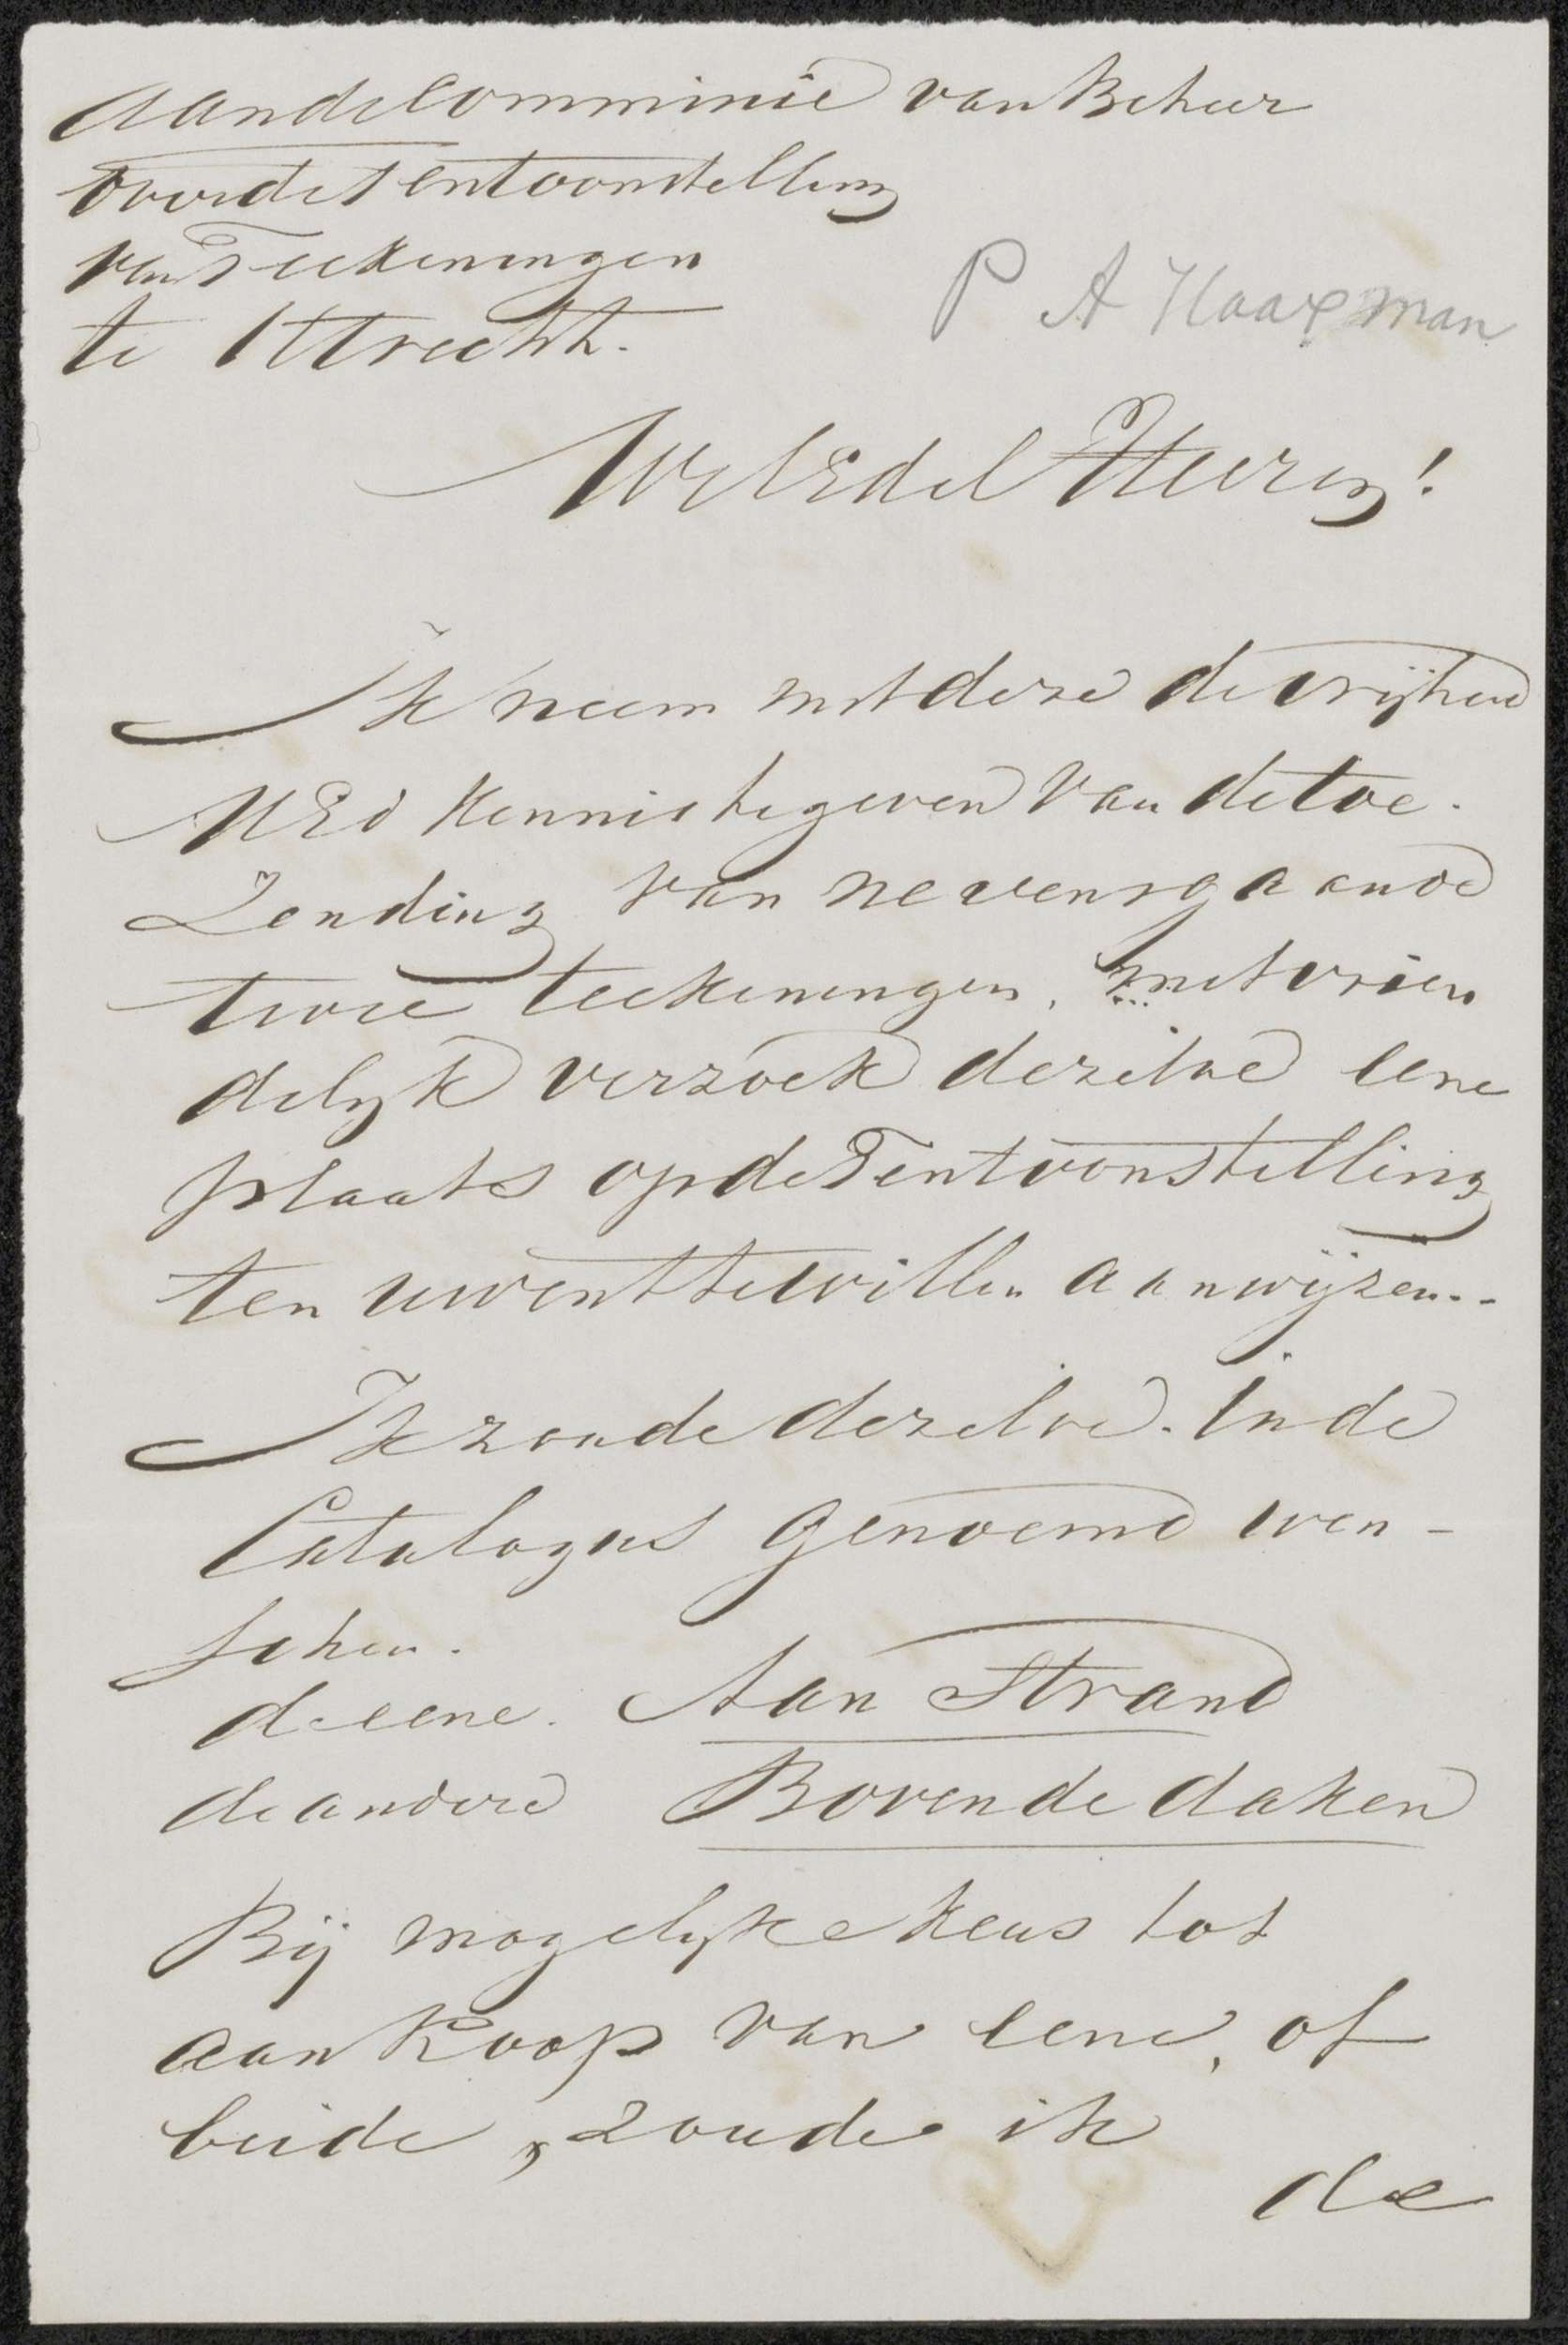 Aan de Commissie van Beheer
voor de Tentoonstelling
van Teekeningen
te Uttrecht.
P A Haaxman
WelEdel Heeren!
Ik neem met deze de vrijheid
UEd kennis te geven van de toe-
Zending van nevensgaande
twee teekeningen, met vrien
delijk verzoek dezelve eene
plaats op de Tentoonstelling
ten uwent te willen aanwijzen..
Ik zoude dezelve. in de
Catalogus genoemd wen-
schen.
de eene. Aan Strand
de andere Boven de daken
Bij mogelijke keus tot
aankoop van eene, of
beide, zoude ik
de